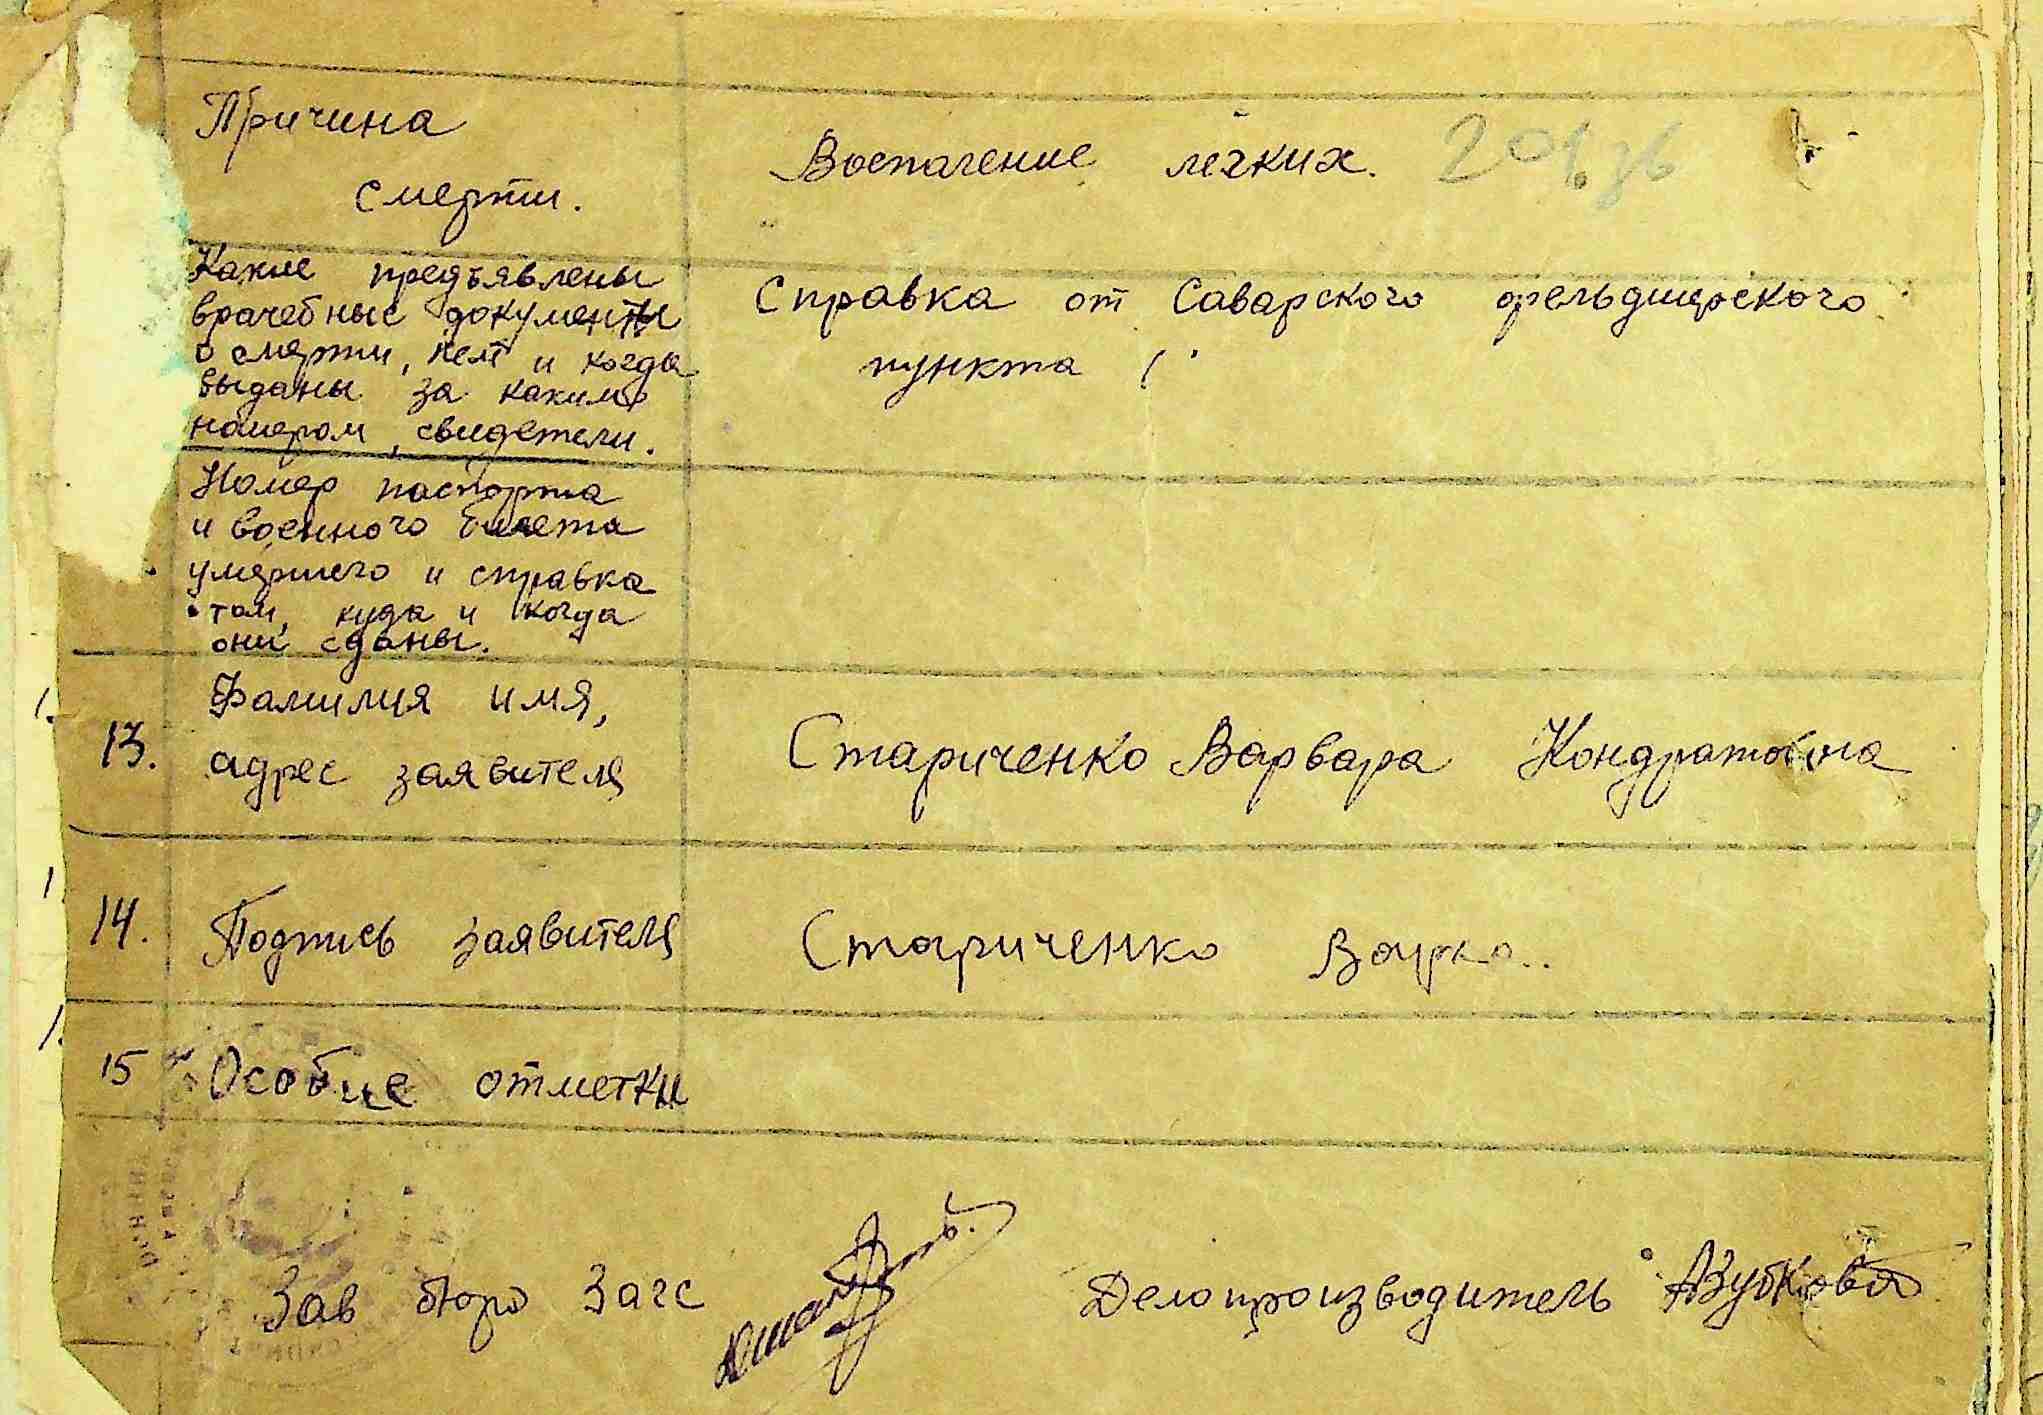 Причина
смерти.
Воспаление лёгких.
Какие предъявлены
врачебные документы
о смерти, кем и когда
выданы за каким
номером, свидетели.
Справка от Саварского фельдшерского
пункта
Номер паспорта
и военного билета
умершего и справка
о том, куда и когда
они сданы.
13. Фамилия имя,
адрес заявителя
Стариченко Варвара Кондратовна
14. Подпись заявителя Стариченко
15 Особые отметки
Зав бюро Загс
Делопроизводитель АЗубкова